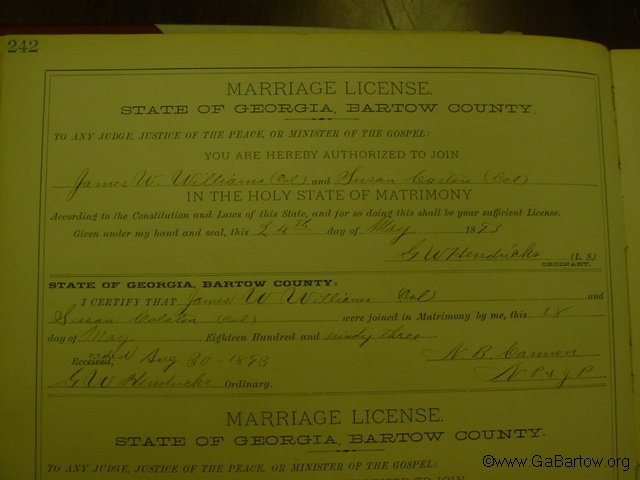 242
MARRIAGE LICENSE.
STATE OF GEORGIA, BARTOW COUNTY.
TO ANY JUDGE, JUSTICE OF THE PEACE, OR MINISTER OF THE GOSPEL:
YOU ARE HEREBY AUTHORIZED TO JOIN
James W. Williams (Col) and Susan (Col)
IN THE HOLY STATE OF MATRIMONY
According to the Constitution and Laws of this State, and for so doing this shall be your sufficient License.
Given under my hand and seal, this 24th day of May 1893
G W Hendricks (L. S.)
ORDINARY.
STATE OF GEORGIA, BARTOW COUNTY:
I CERTIFY THAT James W Williams (Col) and
Susan Colsten (Col) were joined in Matrimony by me, this 28
day of May Eighteen Hundred and ninty three
Received, Aug 30 - 1893 N. B. Cannon
G W Hendricks Ordinary. N P & J P
MARRIAGE LICENSE.
STATE OF GEORGIA, BARTOW COUNTY.
TO ANY JUDGE, JUSTICE OF THE PEACE, OR MINISTER OF THE GOSPEL:
©www.GaBartow.org